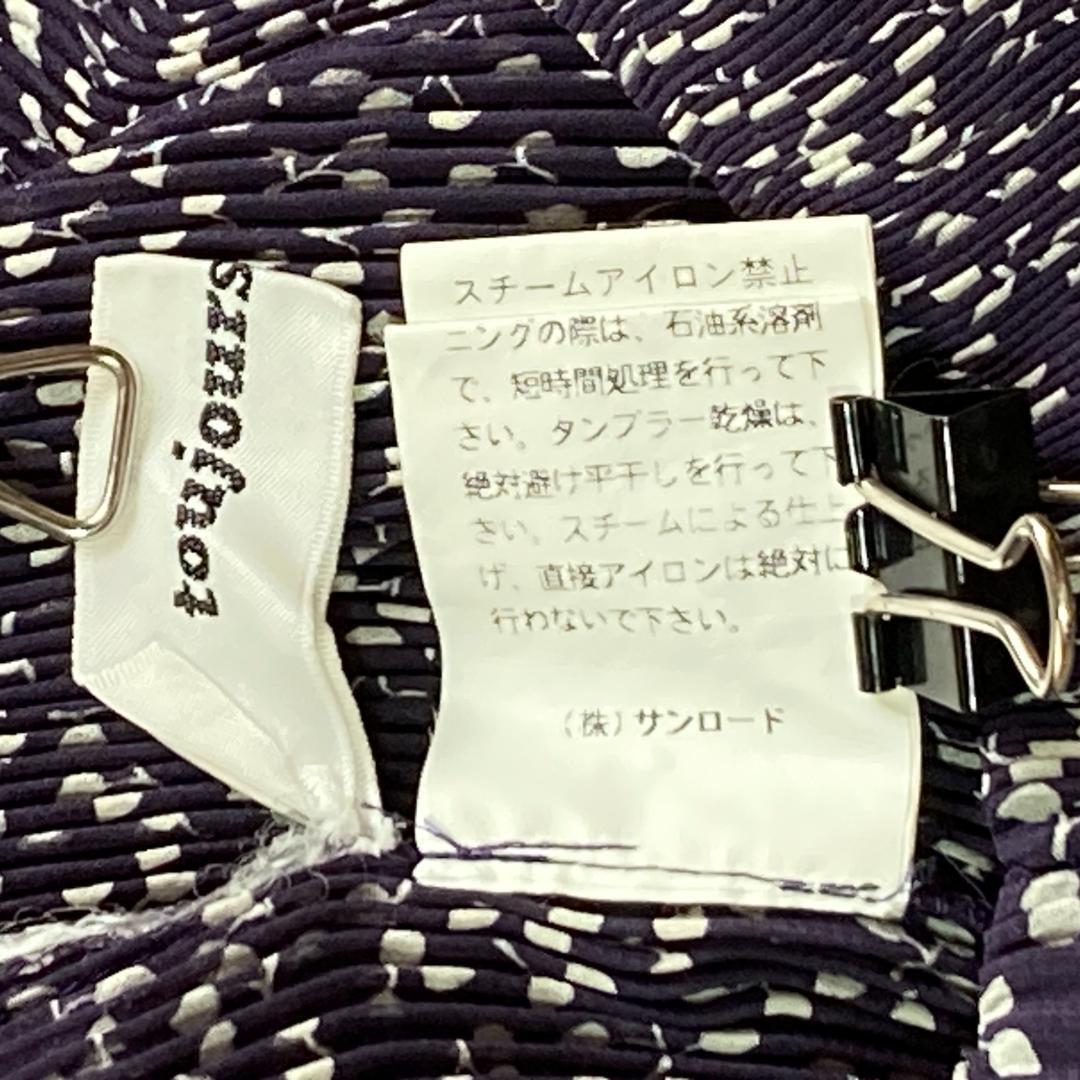 toujours
スチームアイロン禁止
ニングの際は、石油系溶剤
で、短時間処理を行って下
さい。タンブラー乾燥は、
絶対避け平干しを行って下
さい。スチームによる仕上
げ、直接アイロンは絶対に
行わないで下さい。
(株)サンロード